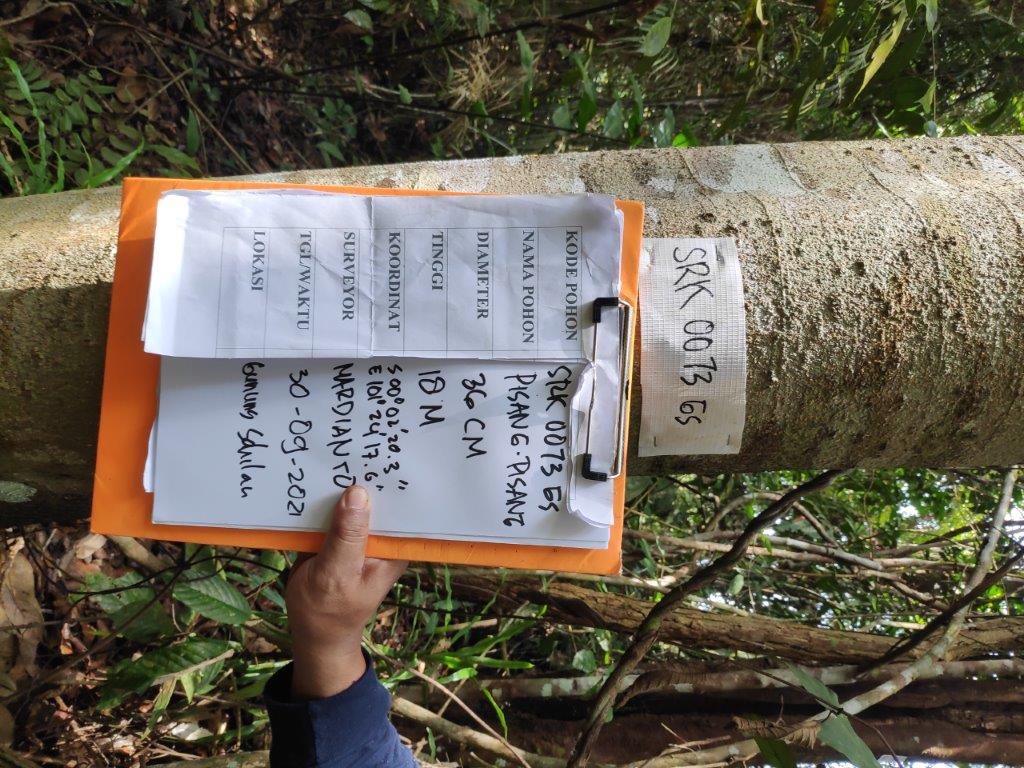 SRK 0073 ES
KODE POHON SRK 0073 ES
NAMA POHON PISANG-PISANG
DIAMETER 36 CM
TINGGI 18 M
KOORDINAT S 00°02'20.3"
E 101°24'17.6"
SURVEYOR MARDIANTO
TGL/WAKTU 30-09-2021
LOKASI Gunung Sahilan